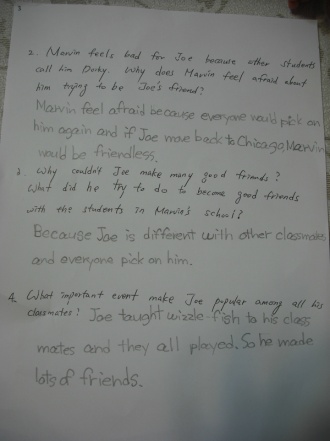 2. Marvin feels bad for Joe because other students
call him Dorky. Why does Marvin feel afraid about
him trying to be Joe's friend?
Marvin feel afraid because everyone would pick on
him again and if Joe move back to Chicago, Marvin
would be friendless.
3. Why couldn't Joe make many good friends?
What did he try to do to become good friends
with the students in Marvin's school?
Because Joe is different with other classmates
and everyone pick on him.
4. What important event make Joe popular among all his
classmates? Joe taught wizzle-fish to his class
mates and they all played. So he made
lots of friends.